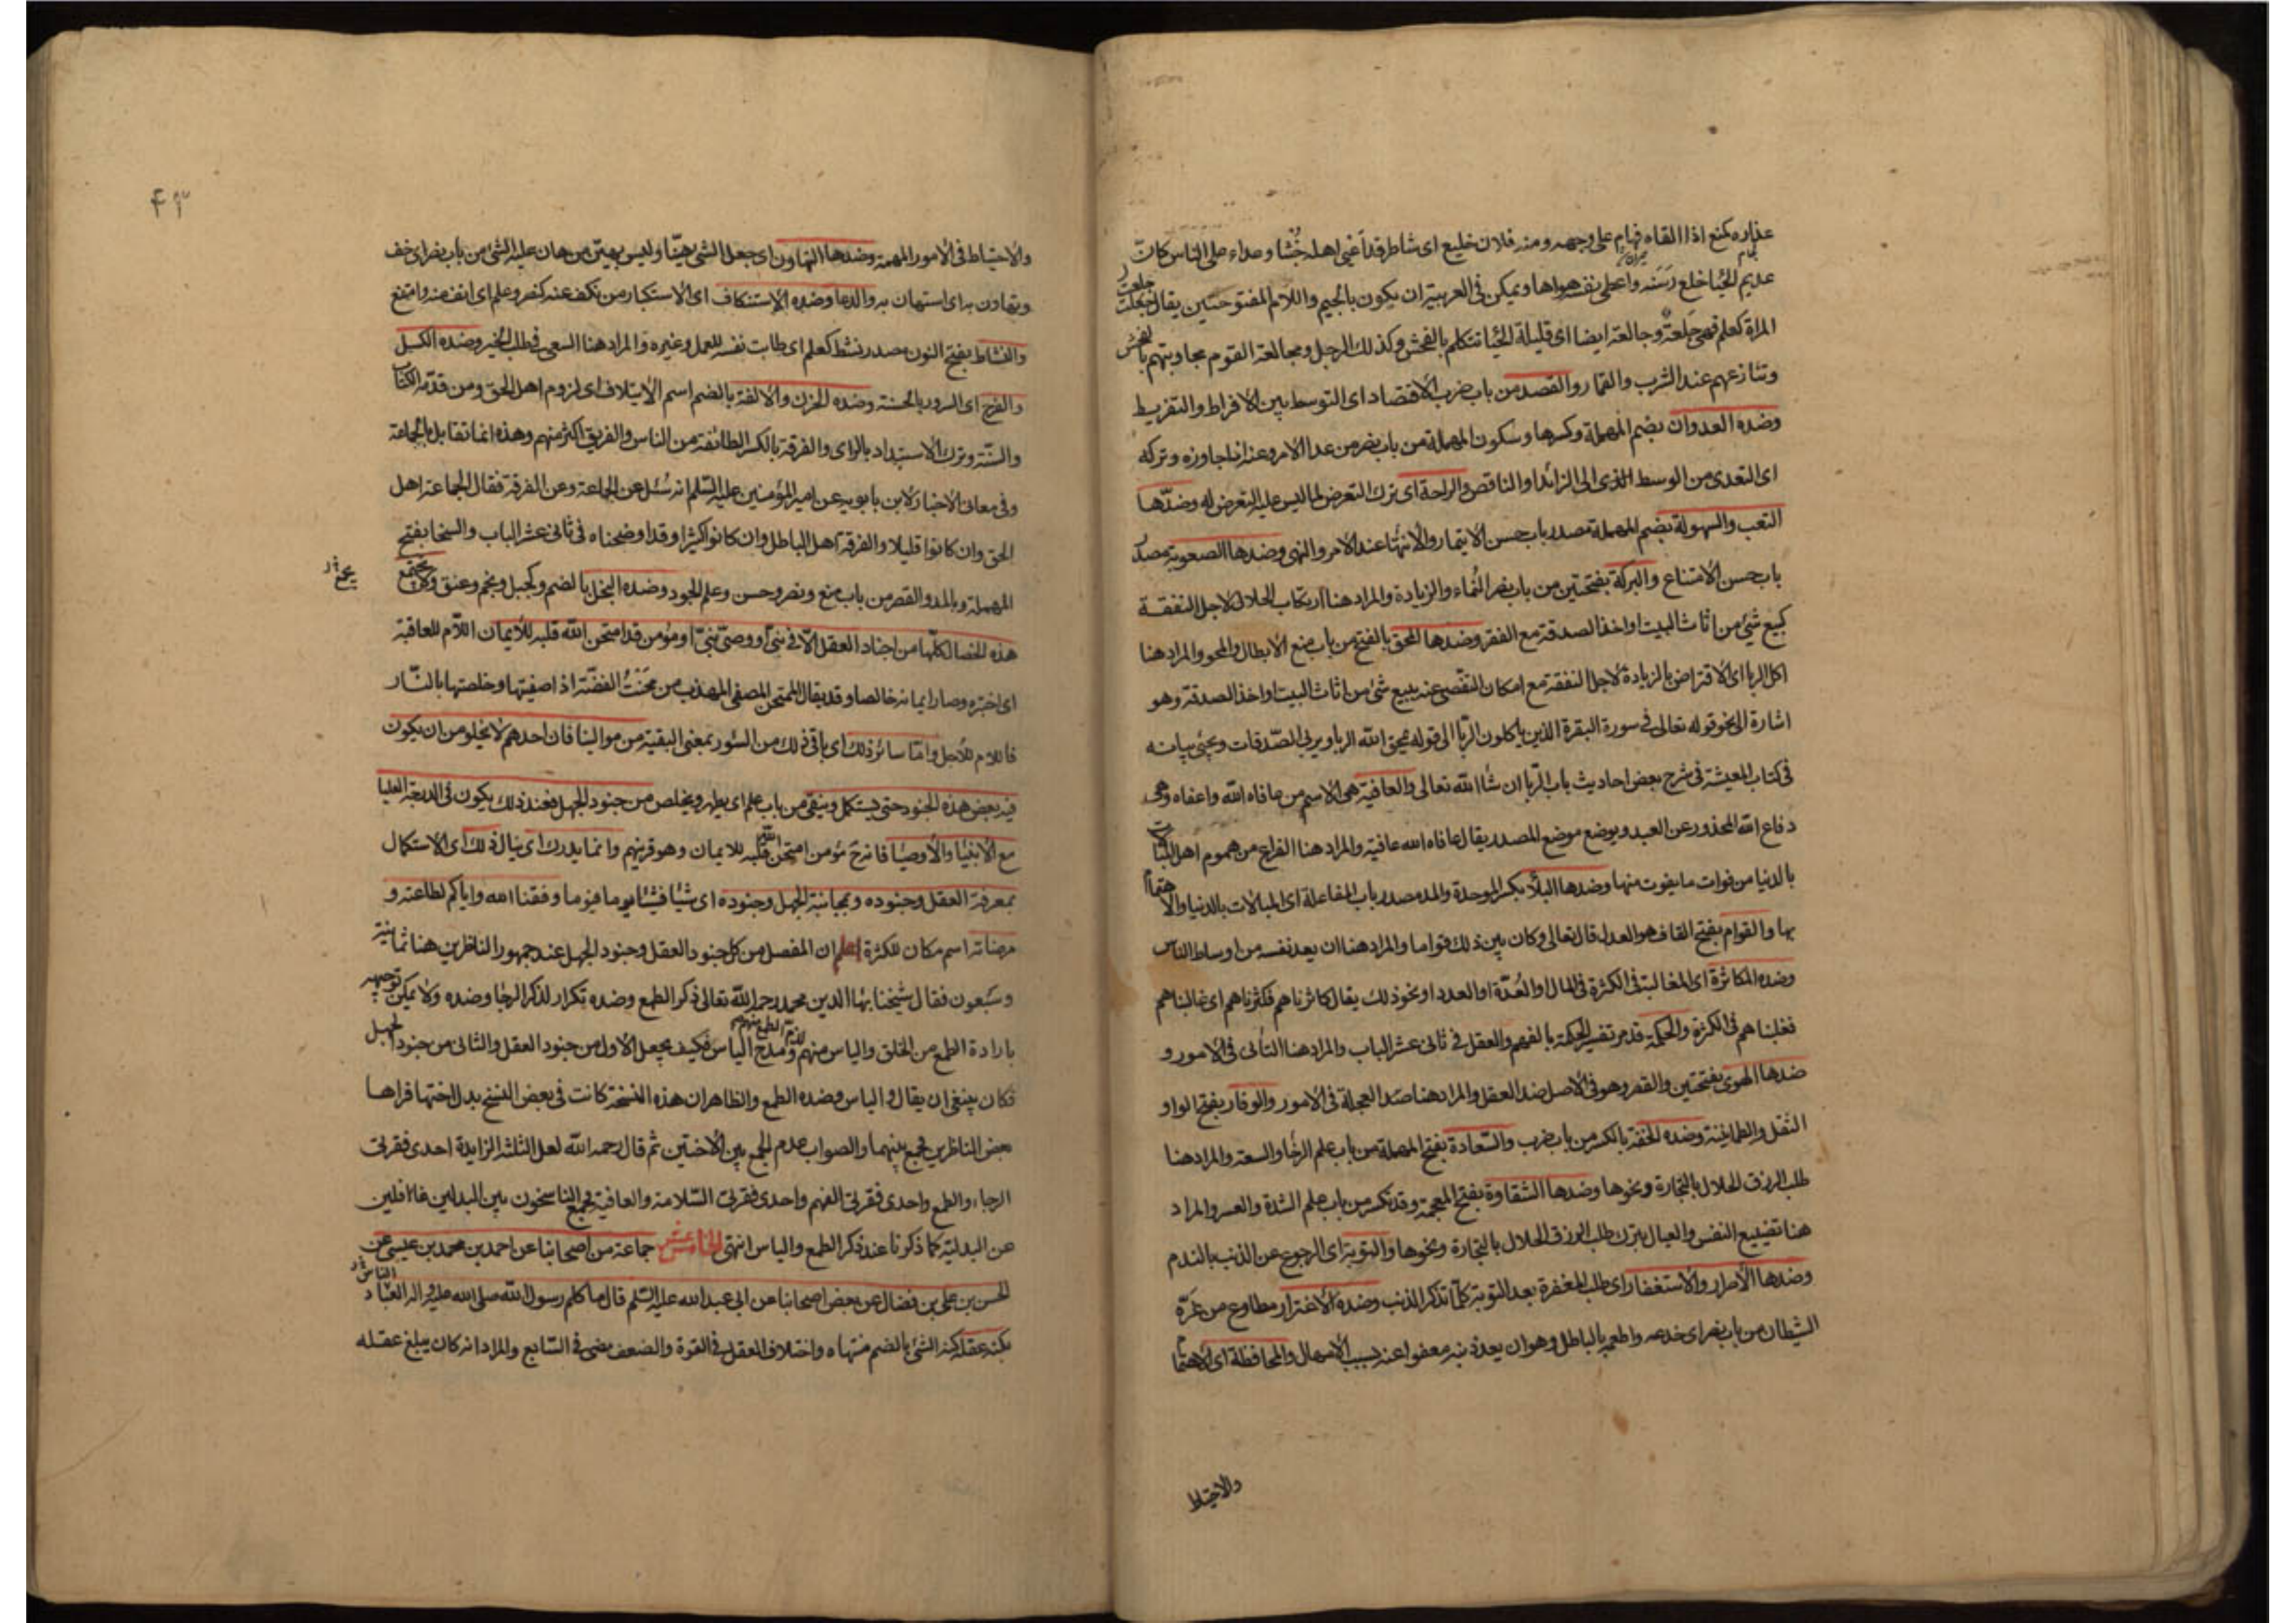 عذاره كمنع اذا القاه فهام على وجهه ومنه فلان خليع اى شاطر قد أعيى اهله خُبْثا وعداء على الناس كانّه
عديم الحيا خلع رَسَنَه واعطى نفسه هواها ويمكن فى العربية ان يكون بالجيم واللام المفتوحتين يقال جلعت
المراة كعلم فهى جَلِعَة وجالعة ايضا اى قليلة الحيا تتكلم بالفحش وكذلك الرجل ومجالعة القوم مجاوبتهم بالفحش
وتنازعهم عند الشرب والقمار والقصد من باب ضرب الاقتصاد اى التوسط بين الافراط والتفريط
وضده العدوان بضم المهملة وكسرها وسكون المهملة من باب نصر من عدا الامر وعنه اذا جاوزه وتركه
اى التعدى من الوسط الذى الى الزائد او الناقص والراحة اى ترك التعرض لما ليس عليه التعرض له وضدّها
التعب والسهولة بضم المهملة مصدر باب حسن الايتمار والانتها عند الامر والنهى وضدها الصعوبة مصدر
باب حسن الامتناع والبركة بفتحتين من باب نصر النماء والزيادة والمراد هنا ارتكاب الحلال لاجل النفقة
كبيع شئ من اثاث البيت او اخذ الصدقة مع الفقر وضدها المحق بالفتح من باب منع الابطال والمحو والمراد هنا
اكل الربا اى الاقتراض بالزيادة لاجل النفقة مع امكان التفصّى عنه ببيع شئ من اثاث البيت او اخذ الصدقة وهو
اشارة الى نحو قوله تعالى فى سورة البقرة الذين ياكلون الربا الى قوله يمحق الله الربا ويربى الصّدقات ويجئ بيانه
فى كتاب المعيشة فى شرح بعض احاديث باب الربا ان شا الله تعالى والعافية هى الاسم من عافاه الله واعفاه وهى
دفاع الله المحذور عن العبد ويوضع موضع المصدر يقال عافاه الله عافية والمراد هنا الفراغ من هموم اهل
بالدنيا من فوات ما يفوت منها وضدها البلا بكسر الموحدة والمد مصدر باب المفاعلة اى المبالات بالدنيا والاهتمام
بها والقوام بفتح القاف هو العدل قال تعالى وكان بين ذلك قواما والمراد هنا ان يعد نفسه من اوساط الناس
وضده المكاثرة اى المغالبة فى الكثرة فى المال او العُدّة او العدد او نحو ذلك يقال كاثرناهم فكثرناهم اى غالبناهم
فغلبناهم فى الكثرة والحكمة قد مر تفسير الحكمة بالفهم والعقل فى ثانى عشر الباب والمراد هنا التأنى فى الامور و
ضدها الهوى بفتحتين والقصر وهو فى الاصل ضد العقل والمراد هنا ضد العجلة فى الامور والوقار بفتح الواو
الثقل والطمانينة وضده الخفة بالكسر من باب ضرب والسّعادة بفتح المهملة من باب علم الرخا والسعة والمراد هنا
طلب الرزق الحلال بالتجارة ونحوها وضدها الشقاوة بفتح المعجمة وقد تكسر من باب علم الشدة والعسر والمراد
هنا تضييع النفس والعيال بترك طلب الرزق الحلال بالتجارة ونحوها والتوبة اى الرجوع عن الذنب بالندم
وضدها الاصرار والاستغفار اى طلب المغفرة بعد التوبة كلّما تذكر الذنب وضده الاغترار مطاوع من غَرّه
الشيطان من باب نصر اى خدعه واطعمه بالباطل وهو ان يعد ذنبه معفوا عنه بسبب الامهال والمحافظة اى الاهتمام
والاحتياط
۴۳
والاحتياط فى الامور المهمة وضدها التهاون اى جعل الشئ هيّنا وليس بهيّن من هان عليه الشئ من باب نصر اى خف
وتهاون به اى استهان به والدعا وضده الاستنكاف اى الاستكبار من نكف عنه كنصر وعلم اى انف منه وامتنع
والنشاط بفتح النون مصدر نشط كعلم اى طابت نفسه للعمل وغيره والمراد هنا السعى فى طلب الخير وضده الكسل
والفرح اى السرور بالحسنة وضده الحزن والالفة بالضم اسم الايتلاف اى لزوم اهل الحق ومن قدّمه الكتاب
والسّنّة وترك الاستبداد بالراى والفرقة بالكسر الطائفة من الناس والفريق اكثر منهم وهذه انما تقابل بالجماعة
وفى معانى الاخبار لابن بابويه عن امير المؤمنين عليه السّلم انه سُئل عن الجماعة وعن الفرقة فقال الجماعة اهل
الحق وان كانوا قليلا والفرقة اهل الباطل وان كانوا كثيرا وقد اوضحناه فى ثانى عشر الباب والسخا بفتح
المهملة وبالمد والقصر من باب منع ونصر وحسن وعلم الجود وضده البخل بالضم وكجبل ونجم وعنق ولا يجتمع
يجمع
هذه الخصال كلّها من اجناد العقل الّا فى نبىّ او وصىّ نبىّ او مؤمن قد امتحن الله قلبه للايمان اللّام للعاقبة
اى اختبره وصار ايمانه خالصا وقد يقال الممتحن المصفى المهذب من مَحَنْتُ الفضّة اذا صفيتها وخلصتها بالنّار
فاللام للاجل وامّا سائر ذلك اى باقى ذلك من السّور بمعنى البقية من موالينا فان احدهم لا يخلو من ان يكون
فيه بعض هذه الجنود حتى يستكمل وينقى من باب علم اى يطهر ويخلص من جنود الجهل فعند ذلك يكون فى الدرجة العليا
مع الانبيا والاوصيا فانه ح مؤمن امتحن الله قلبه للايمان وهو قرينهم وانما يدرك اى ينال ذلك اى الاستكمال
بمعرفة العقل وجنوده ومجانبة الجهل وجنوده اى شيئا فشيئا يوما فيوما وفقنا الله واياكم لطاعته و
مرضاته اسم مكان للكثرة اعلم ان المفصل من كل جنود العقل وجنود الجهل عند جمهور الناظرين هنا ثمانية
وسبعون فقال شيخنا بها الدين محمد رحمه الله تعالى ذكر الطمع وضده تكرار لذكر الرجا وضده ولا يمكن توجيهه
بارادة الطمع من الخلق والياس منهم لذمّ الطمع منهم ومدح الياس فكيف يجعل الاول من جنود العقل والثانى من جنود الجهل
فكان ينبغى ان يقال والياس وضده الطمع والظاهر ان هذه النسخة كانت فى بعض النسخ بدل اختها فراها
بعض الناظرين فجمع بينهما والصواب عدم الجمع بين الاختين ثم قال رحمه الله لعل الثلثة الزايدة احدى فقرتى
الرجاء والطمع واحدى فقرتى الفهم واحدى فقرتى السّلامة والعافية فجمع الناسخون بين البدلين غافلين
عن البدلية كما ذكرنا عند ذكر الطمع والياس انتهى الخامس عشر جماعة من اصحابنا عن احمد بن محمد بن عيسى عن
الحسن بن على بن فضال عن بعض اصحابنا عن ابى عبد الله عليه السّلم قال ما كلم رسول الله صلى الله عليه واله العباد
الناس
بكنه عقله كنه الشئ بالضم منتهاه واختلاف العقل فى القوة والضعف مضى فى السّابع والمراد انه كان يبلغ عقله